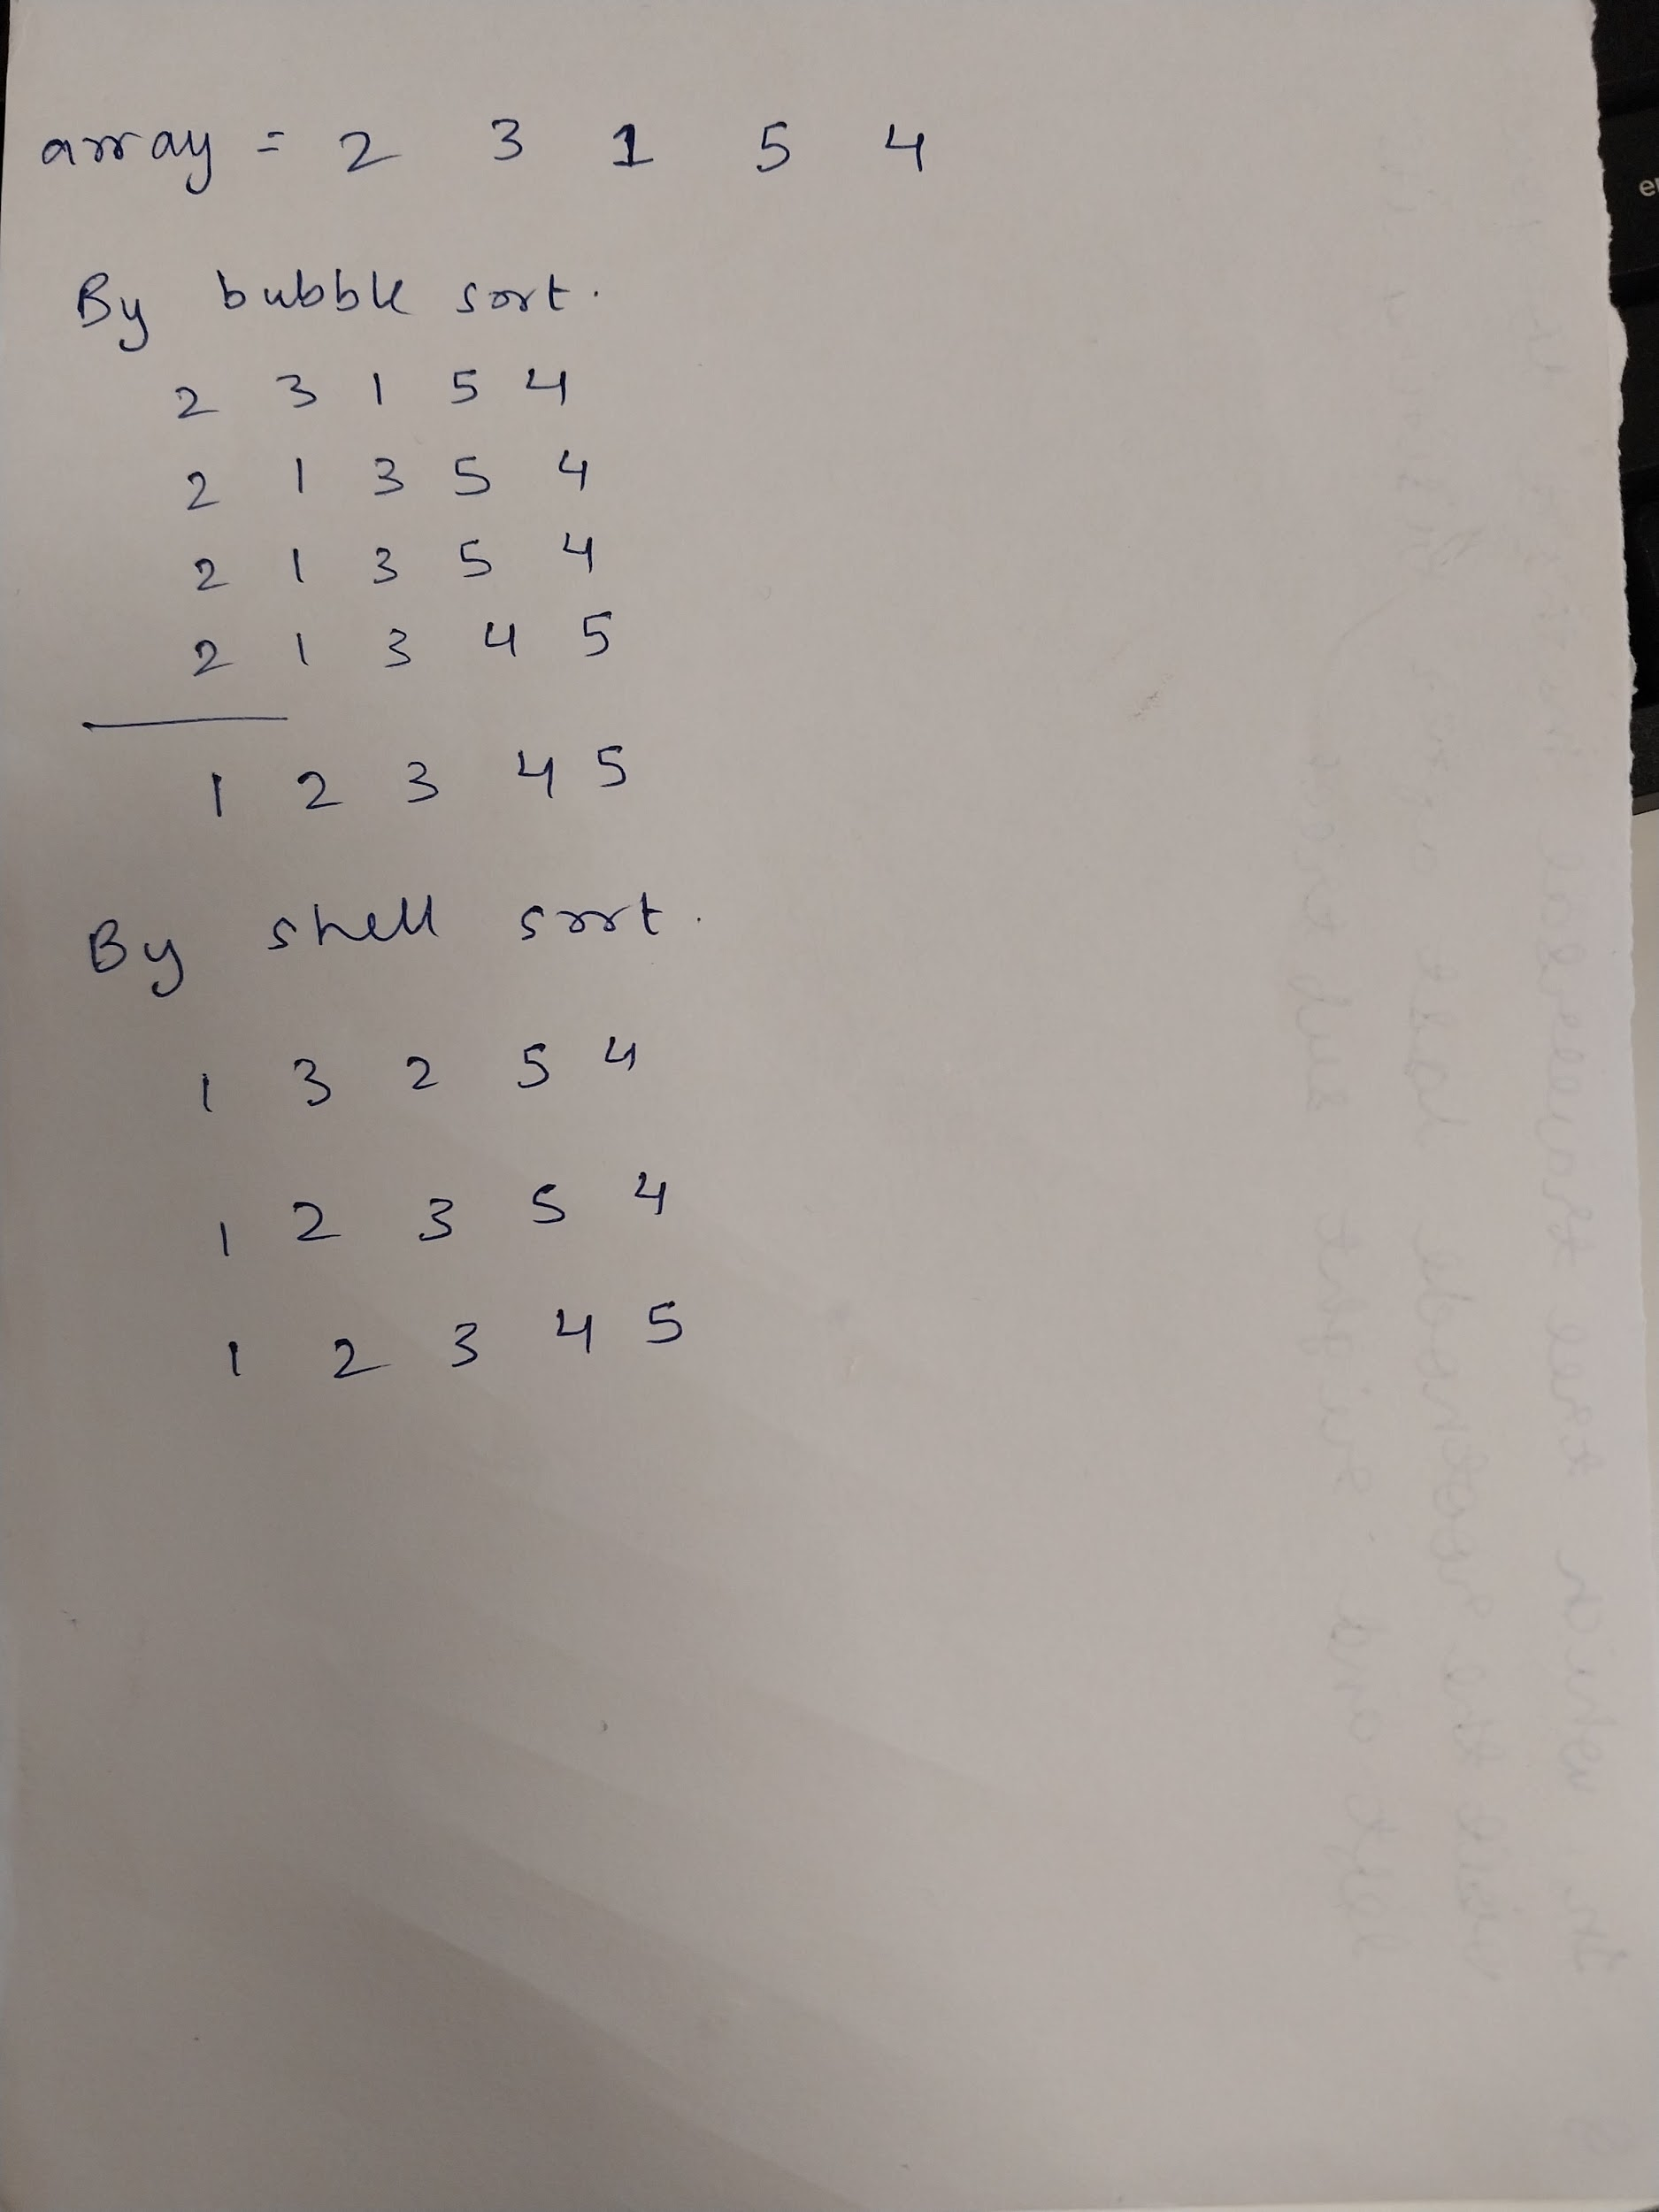 array = 2 3 1 5 4
By bubble sort.
2 3 1 5 4
2 1 3 5 4
2 1 3 5 4
2 1 3 4 5
1 2 3 4 5
By shell sort.
1 3 2 5 4
1 2 3 5 4
1 2 3 4 5